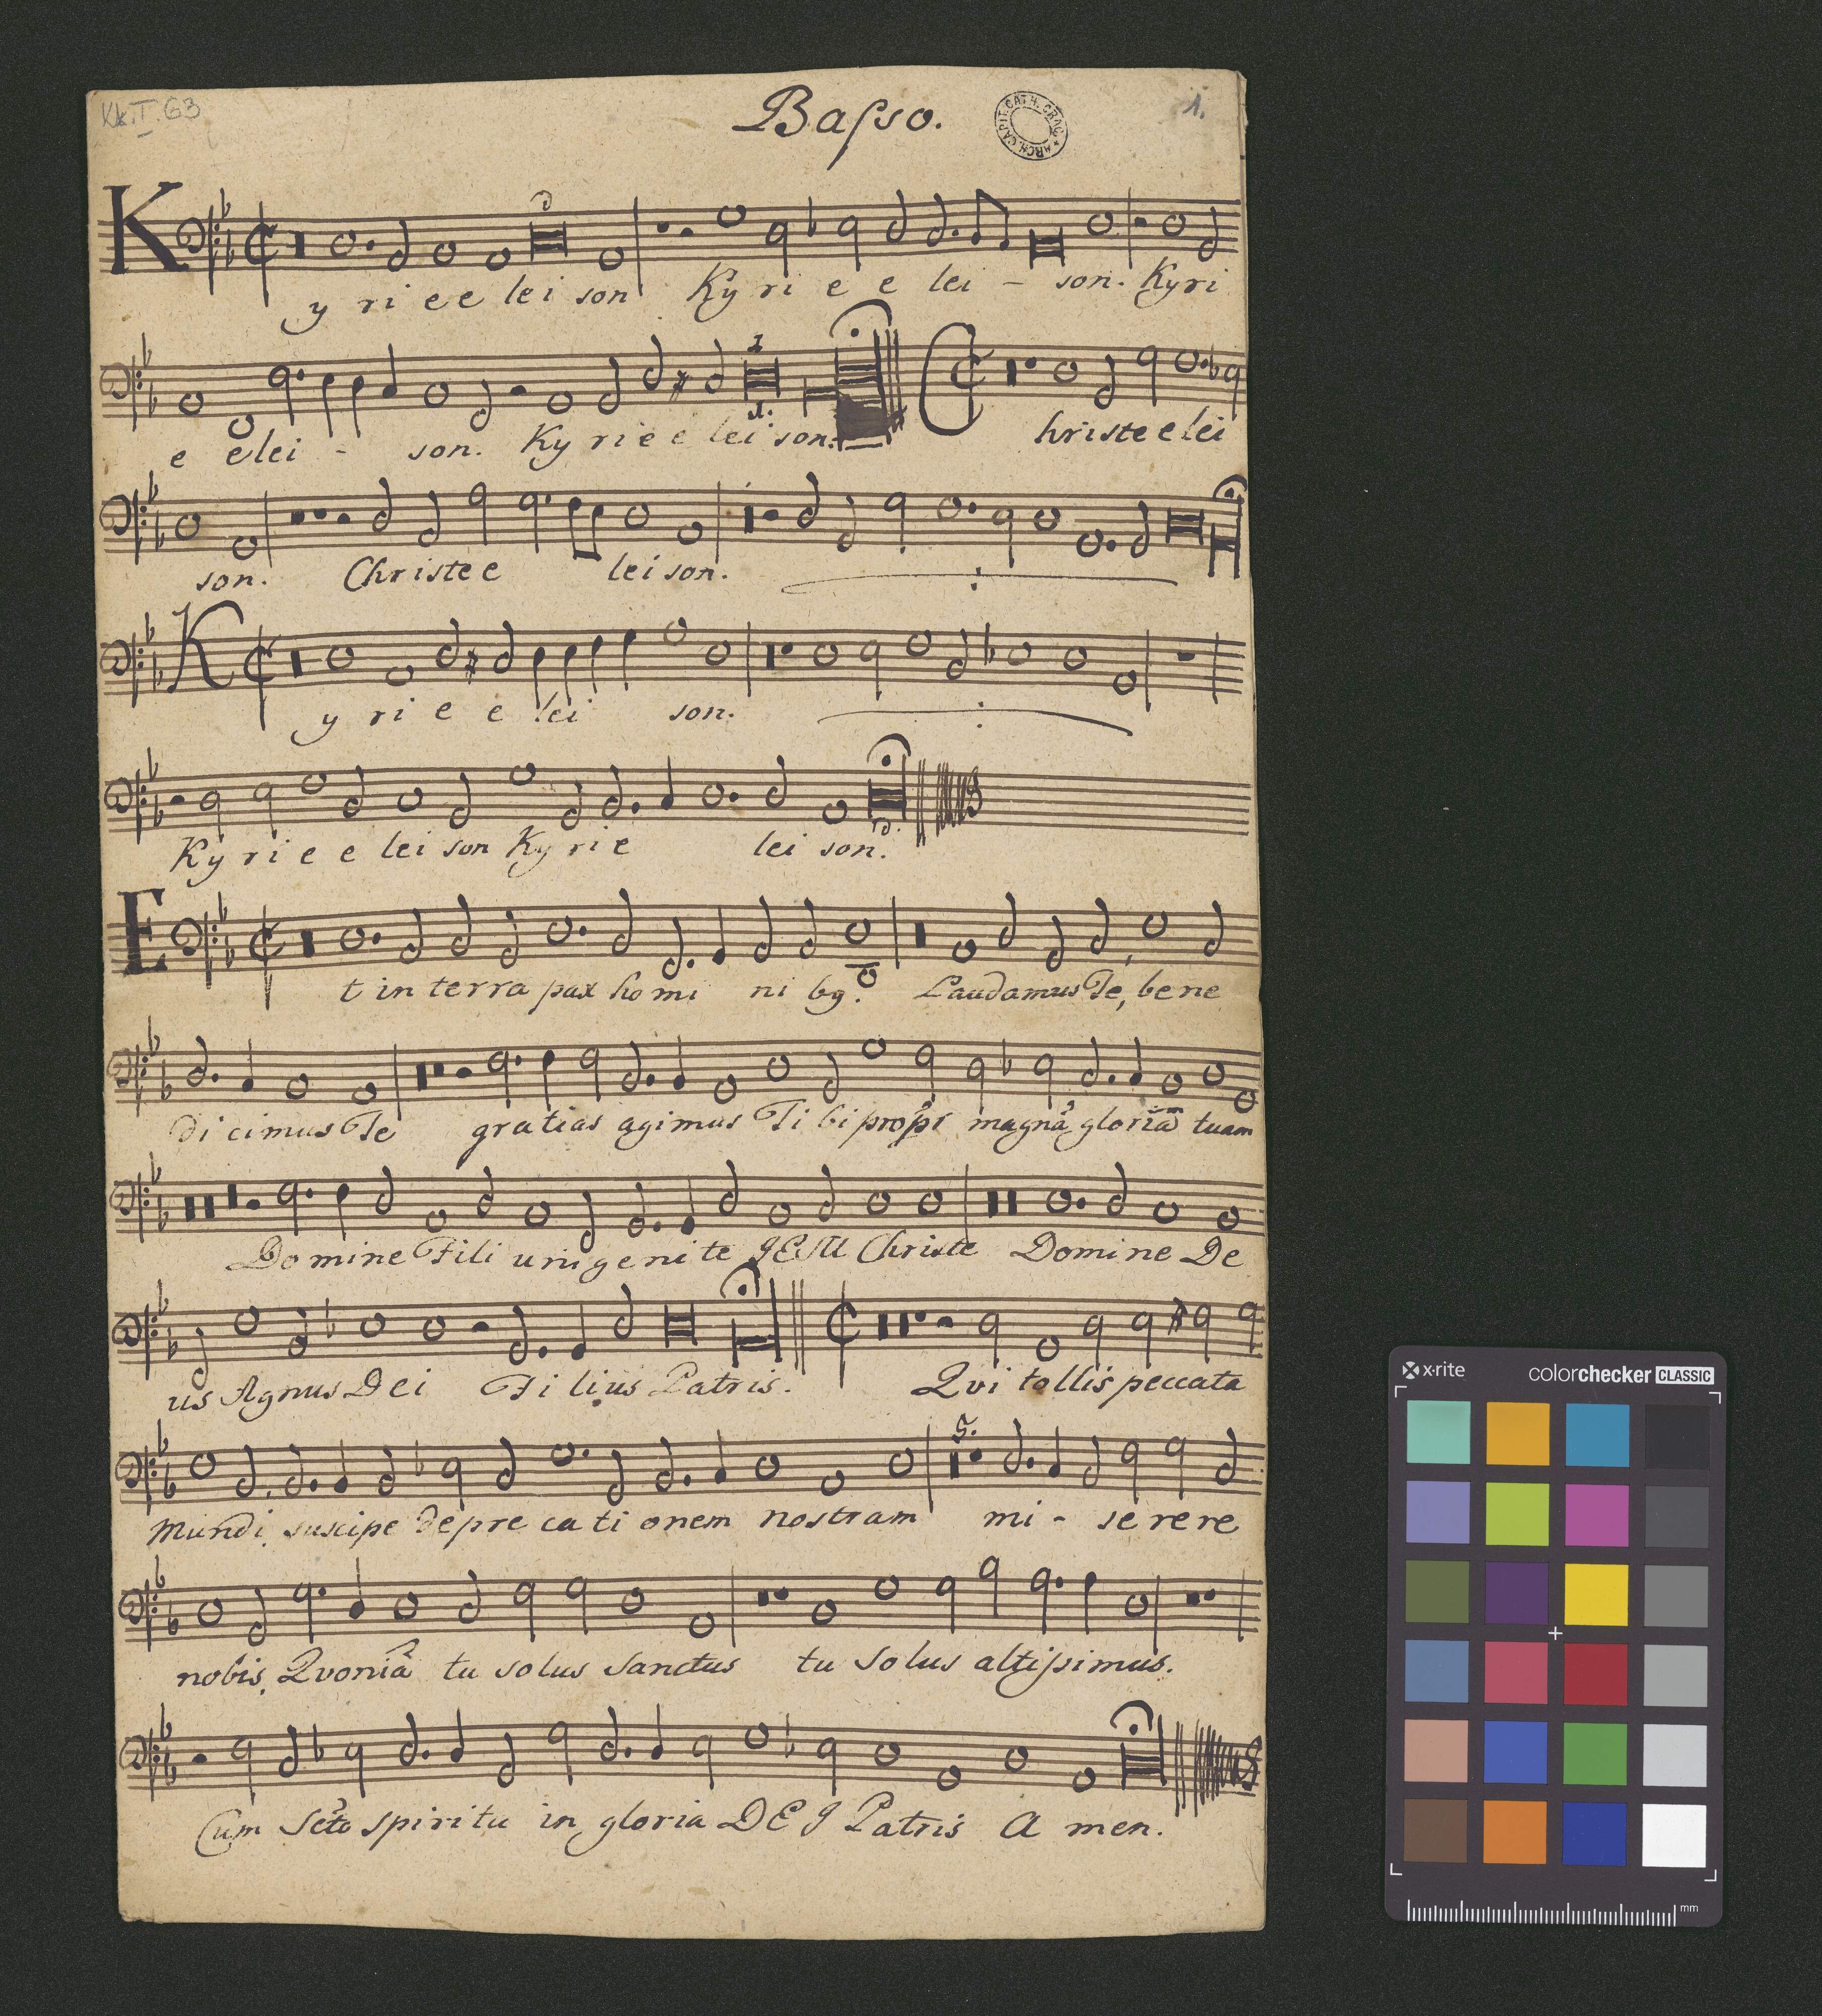 Kk.I.63
Baſso.
ARCH. CAPIT. CATH. CRAC.
1.
K y ri e e lei son Ky ri e e lei - son. Kyri
e elei - son. Ky rie e lei son. C hriste e lei
son. Christe e lei son.
K y ri e e lei son.
Ky ri e e lei son Ky rie lei son.
E t in terra pax ho mi ni bg. Laudamus Te, bene
di cimus Te gratias agimus Ti bi propr magnã gloriã tuam
Domine Fili unigenite JESU Christe Domine De
us Agnus Dei Fi lius Patris. Qvi tollis peccata
5.
Mundi, suscipe depre ca ti onem nostram mi - se re re
nobis, Qvoniã tu solus Sanctus tu solus altiſsimus.
Cum Scto spiritu in gloria DEI Patris A men.
x-rite colorchecker CLASSIC
mm